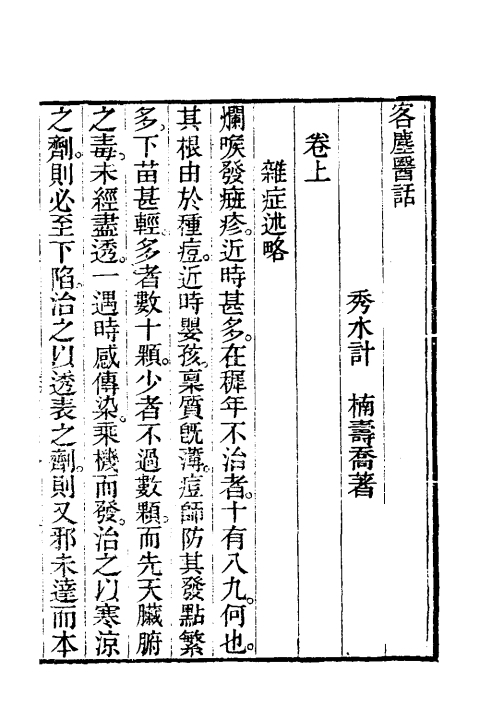 客塵醫話
秀水計　楠壽喬著
卷上
雜症述略
爛喉發癍疹。近時甚多。在穉年不治者。十有八九。何也。
其根由於種痘。近時嬰孩。稟質旣薄。痘師防其發點繁
多。下苗甚輕。多者數十顆。少者不過數顆。而先天臟腑
之毒。未經盡透。一遇時感傳染。乘機而發。治之以寒涼
之劑。則必至下陷。治之以透表之劑。則又邪未達而本